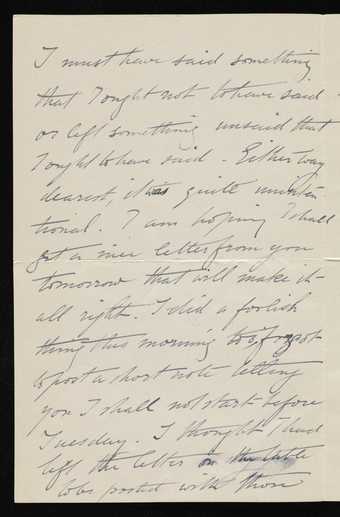 I must have said something
that I ought not to have said -
or left something unsaid that
I ought to have said - Either way
dearest, it was quite uninten
tional. I am hoping I shall
get a nice letter from you
tomorrow that will make it
all right. I did a foolish
thing this morning to forgot
to post a short note letting
you I shall not start before
Tuesday. I thought I had
left the letter on the table
to be posted with those